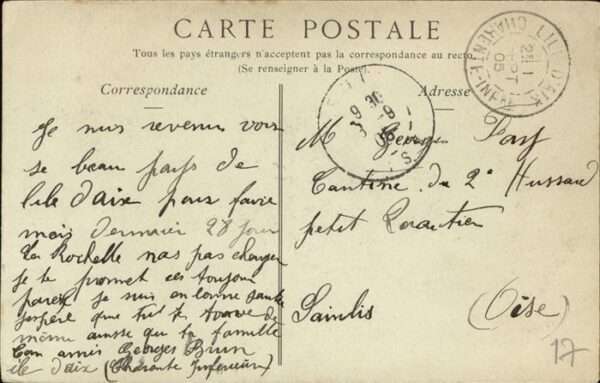 CARTE POSTALE
Tous les pays étrangers n'acceptent pas la correspondance au recto
(Se renseigner à la Poste)
Correspondance
Adresse
ILE D'AIX
CHARENTE-INFRE
21 1
SEPT
05
Je suis revenu voir
se beau pays de
l'ile d'aix pour faire
mois dernier 28 jour
La Rochelle nas pas changer
je te promet ces toujour
pareil je suis en bonne santer
j'espère que tu te trouve de
même ainsse que ta famille
ton ami Georges Brun
ile daix (Charente Inferieur)
M Georges
Cantine du 2e Hussard
petit Quartier
Sainlis (Oise)
17